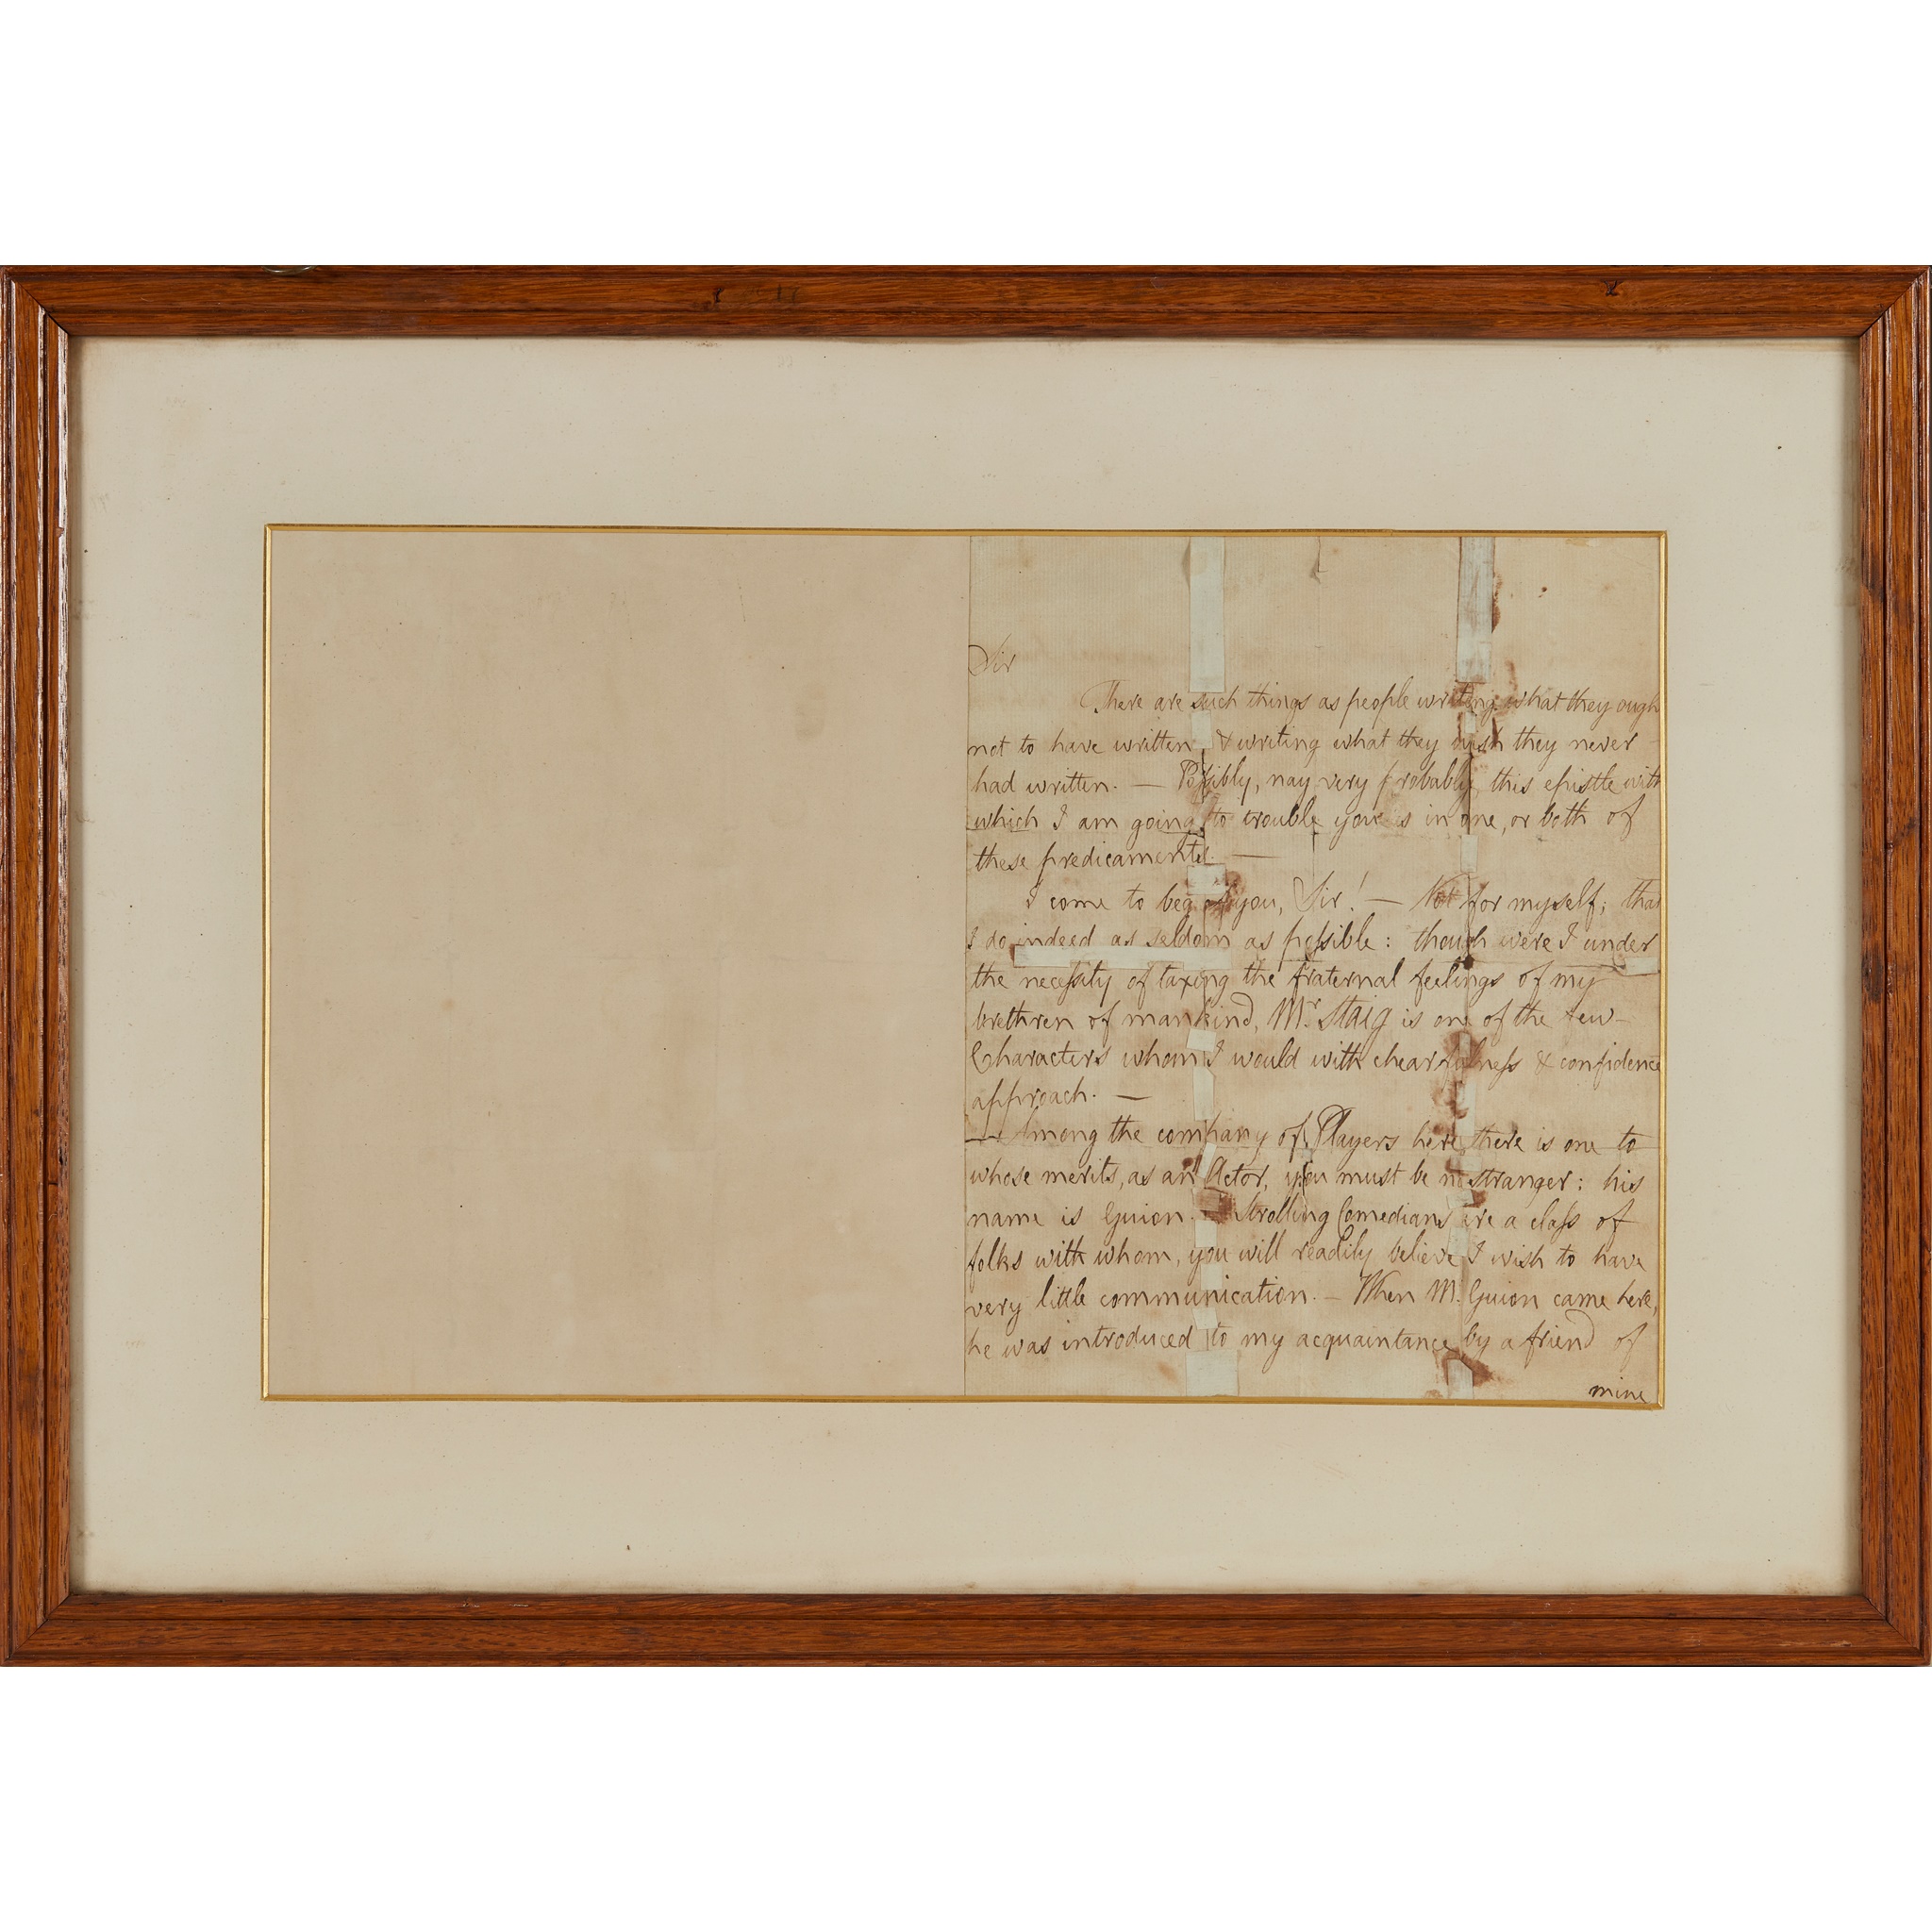 Sir
There are such things as people writing what they ough
not to have written, & writing what they wish they never
had written. — Possibly, nay very probably, this epistle with
which I am going to trouble you is in one, or both of
these predicaments. —
I come to beg of you, Sir! — Not for myself; that
I do indeed as seldom as possible: though were I under
the necessity of taxing the fraternal feelings of my
brethren of mankind, Mr. Staig is one of the few
Characters whom I would with chearfulness & confidence
approach. —
— Among the company of Players here, there is one to
whose merits, as an Actor, you must be no stranger: his
name is Guion. — Strolling Comedians are a class of
folks with whom, you will readily believe I wish to have
very little communication. — When Mr. Guion came here,
he was introduced to my acquaintance by a friend of
mine